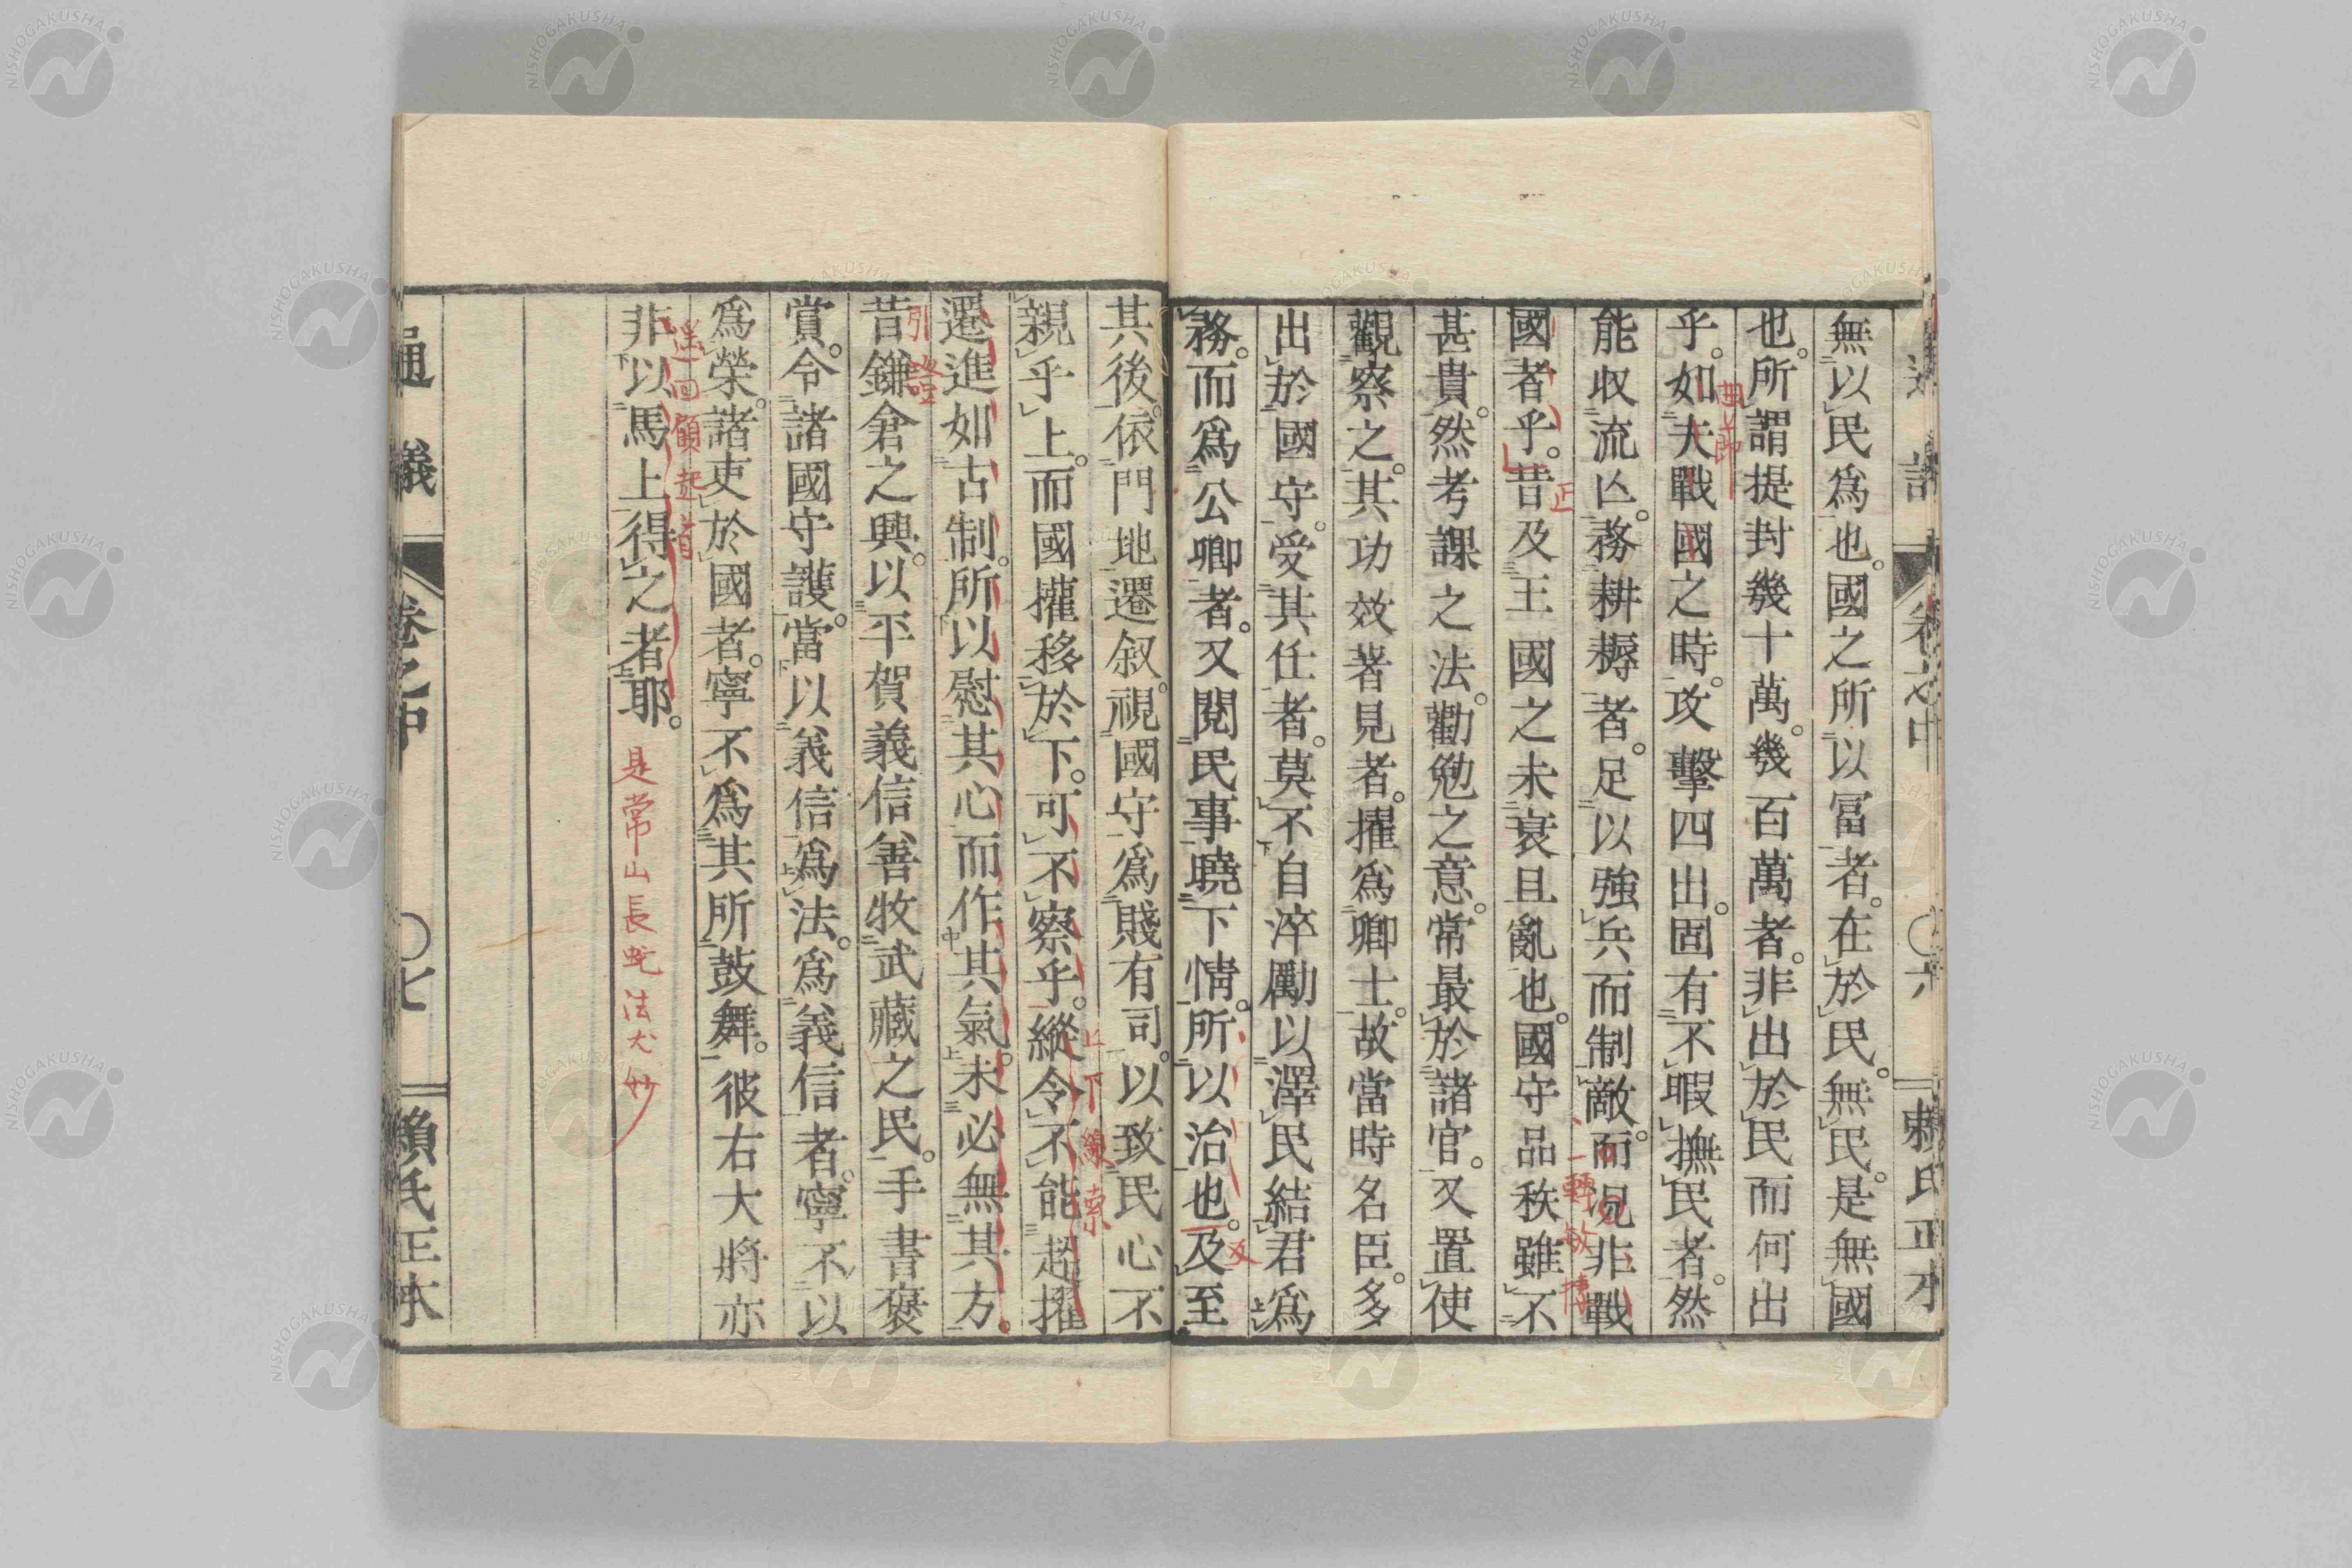 無以民爲也。國之所以富者。在於民。無民。是無國
也。所謂提封幾十萬。幾百萬者。非出於民而何出
曲節
乎。如夫戰國之時。攻擊四出。固有不暇撫民者。然
能收流亾。務耕耨者。足以強兵而制敵。而況非戰
一轉
國者乎。昔及王國之未衰且亂也。國守品秩雖不
正
甚貴。然考課之法。勸勉之意。常最於諸官。又置使
觀察之。其功效著見者。擢爲卿士。故當時名臣。多
出於國守。受其任者。莫不自淬勵以澤民結君爲
務。而爲公卿者。又閱民事曉下情。所以治也。及至
反
其後。依門地遷叙。視國守爲賤有司。以致民心不
親乎上。而國權移於下。可不察乎。縱令不能超擢
上下線索
遷進如古制。所以慰其心而作其氣。未必無其方。
昔鎌倉之興。以平賀義信善牧武藏之民。手書褒
引證
賞。令諸國守護。當以義信爲法。爲義信者。寧不以
爲榮。諸吏於國者。寧不爲其所鼓舞。彼右大將亦
非以馬上得之者耶。
遙回顧起首
是常山長蛇法尤妙
通議 卷之中 〇七 賴氏正本
卷之中 〇六 賴氏正本
NISHOGAKUSHA